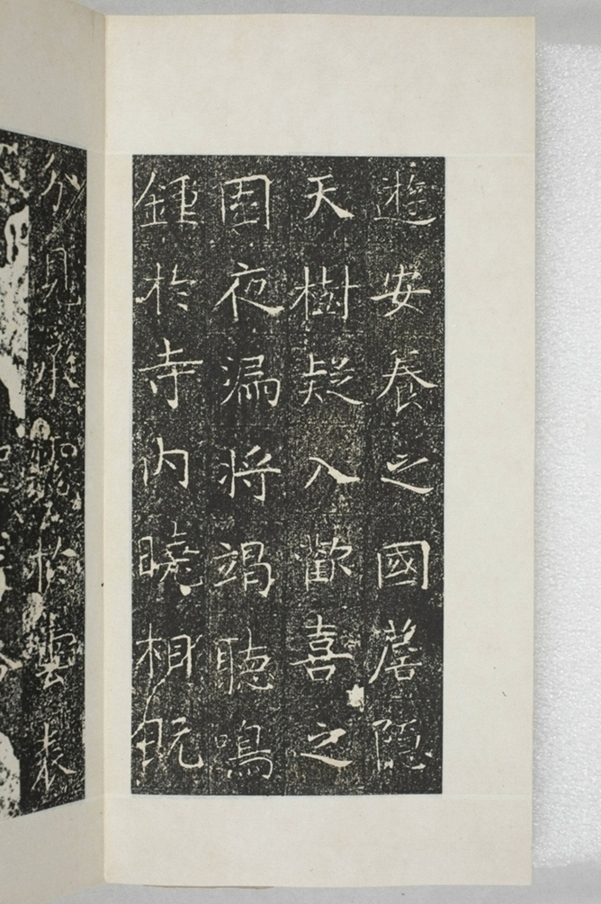 遊安養之國蔭隱
天樹疑入歡喜之
園夜漏將竭聽鳴
鍾於寺内曉相既
分見承露於雲表